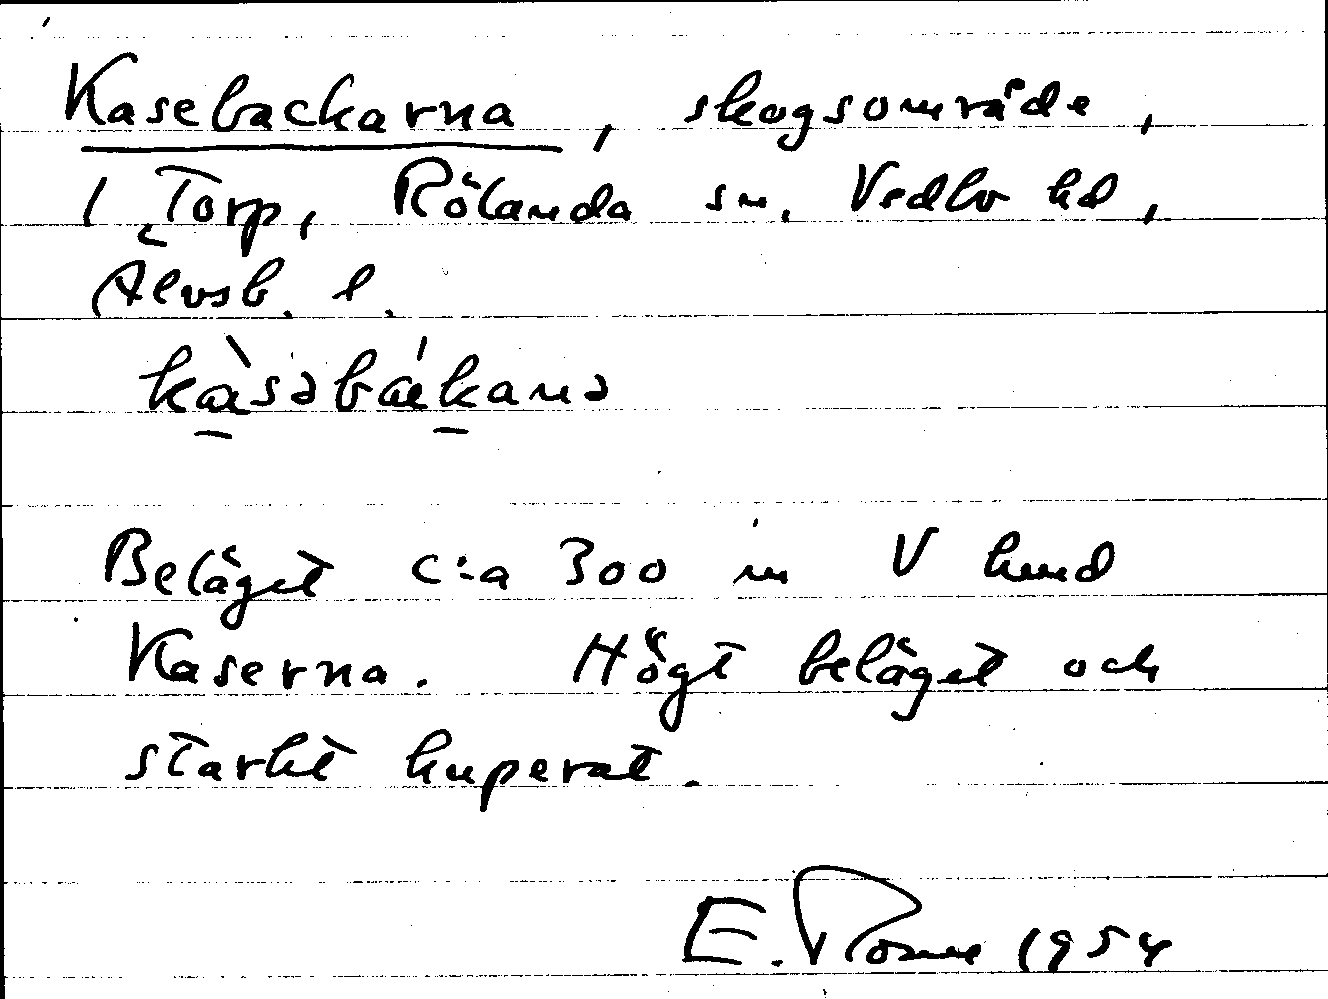 Kasebackarna, skogsområde,
1 Torp, Rölanda sn. Vedbo hd,
Älvsb. l.
kàsəbákanə
Beläget c:a 300 m V hmd
Kaserna. Högt beläget och
starkt kuperat.
E. 1954